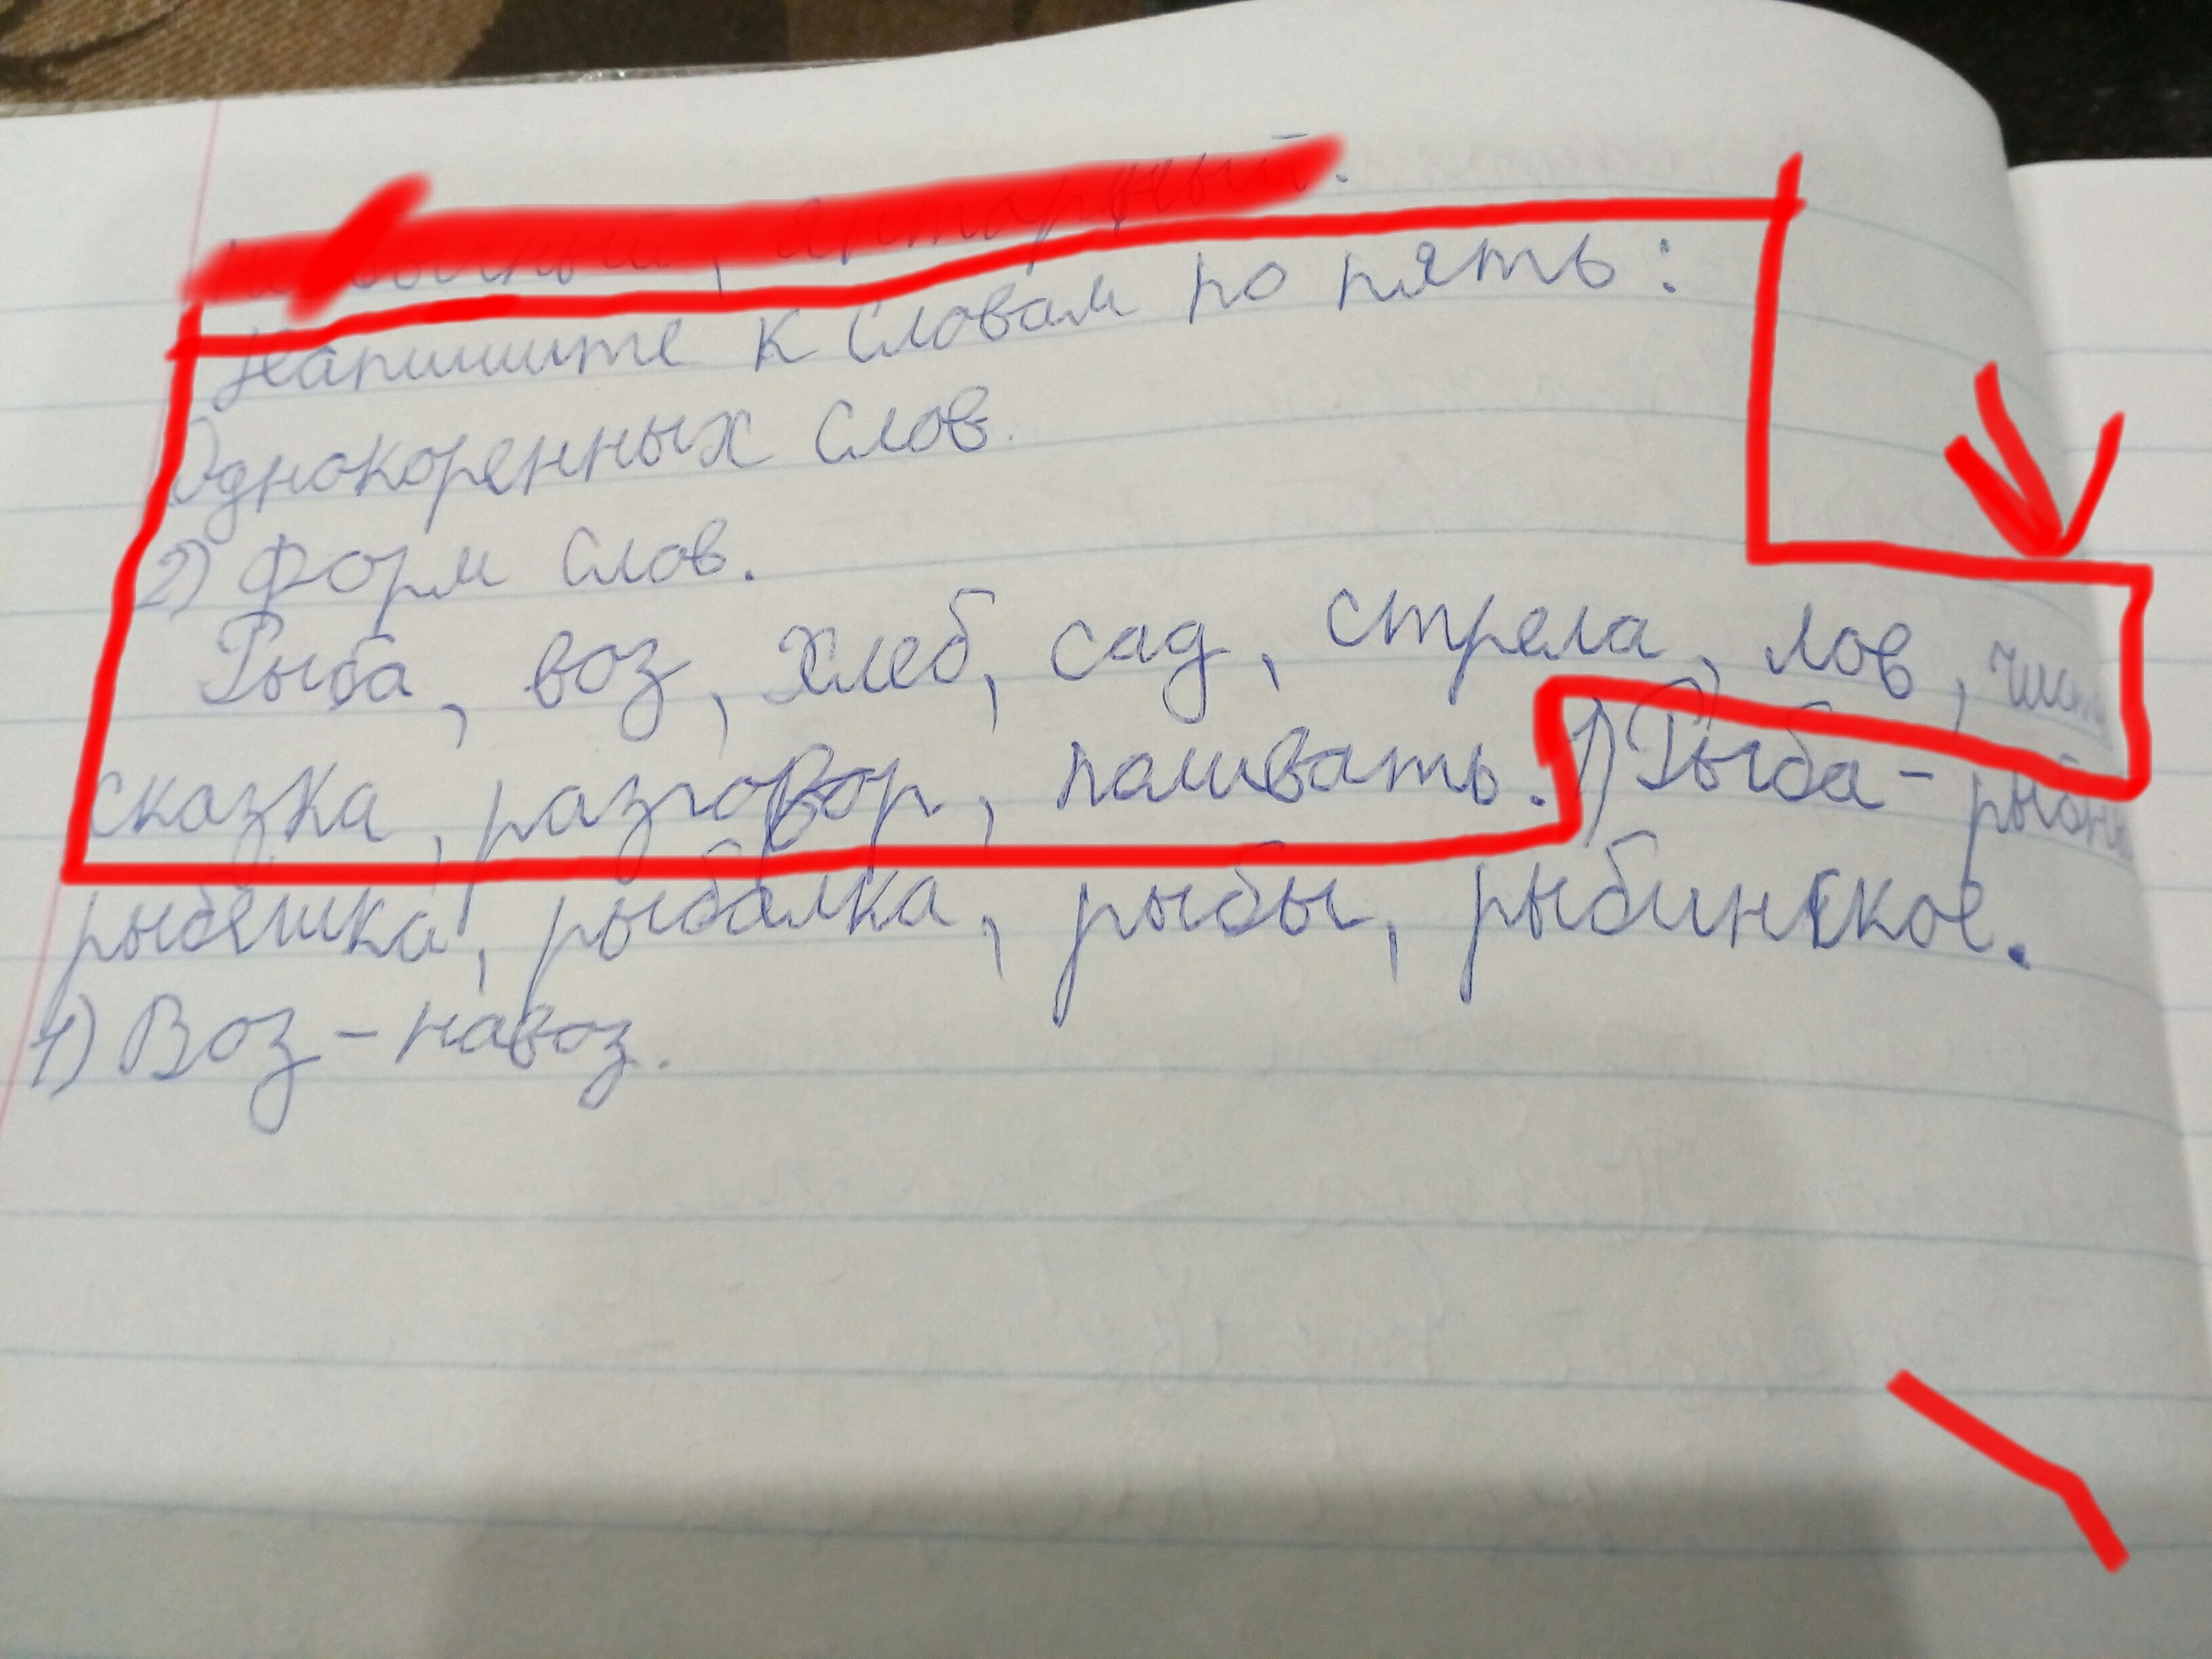 янтарный.
Напишите к словам по пять:
Однокоренных слов.
2) Форм слов.
Рыба, воз, хлеб, сад, стрела, лов,
сказка, разговор, поливать. 1) Рыба -
рыбёшка, рыбалка, рыбы, рыбинское.
1) Воз - навоз.